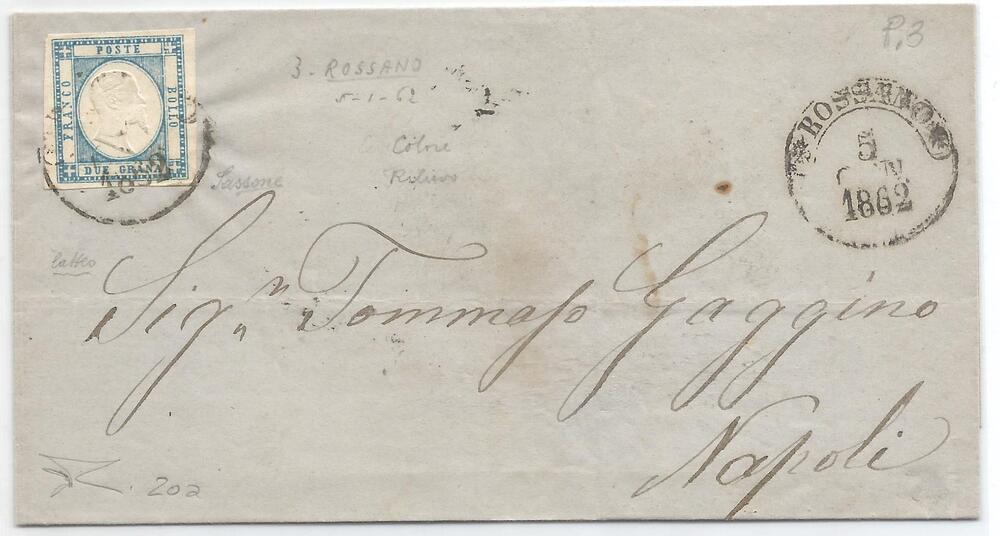 P.3
POSTE
FRANCO
BOLLO
DUE GRANA
1862
3 - ROSSANO
5-1-62
Colore
Rilievo
Sassone
latteo
ROSSANO
5
GEN
1862
Sig.rn Tommaso Gaggino
Napoli
20a